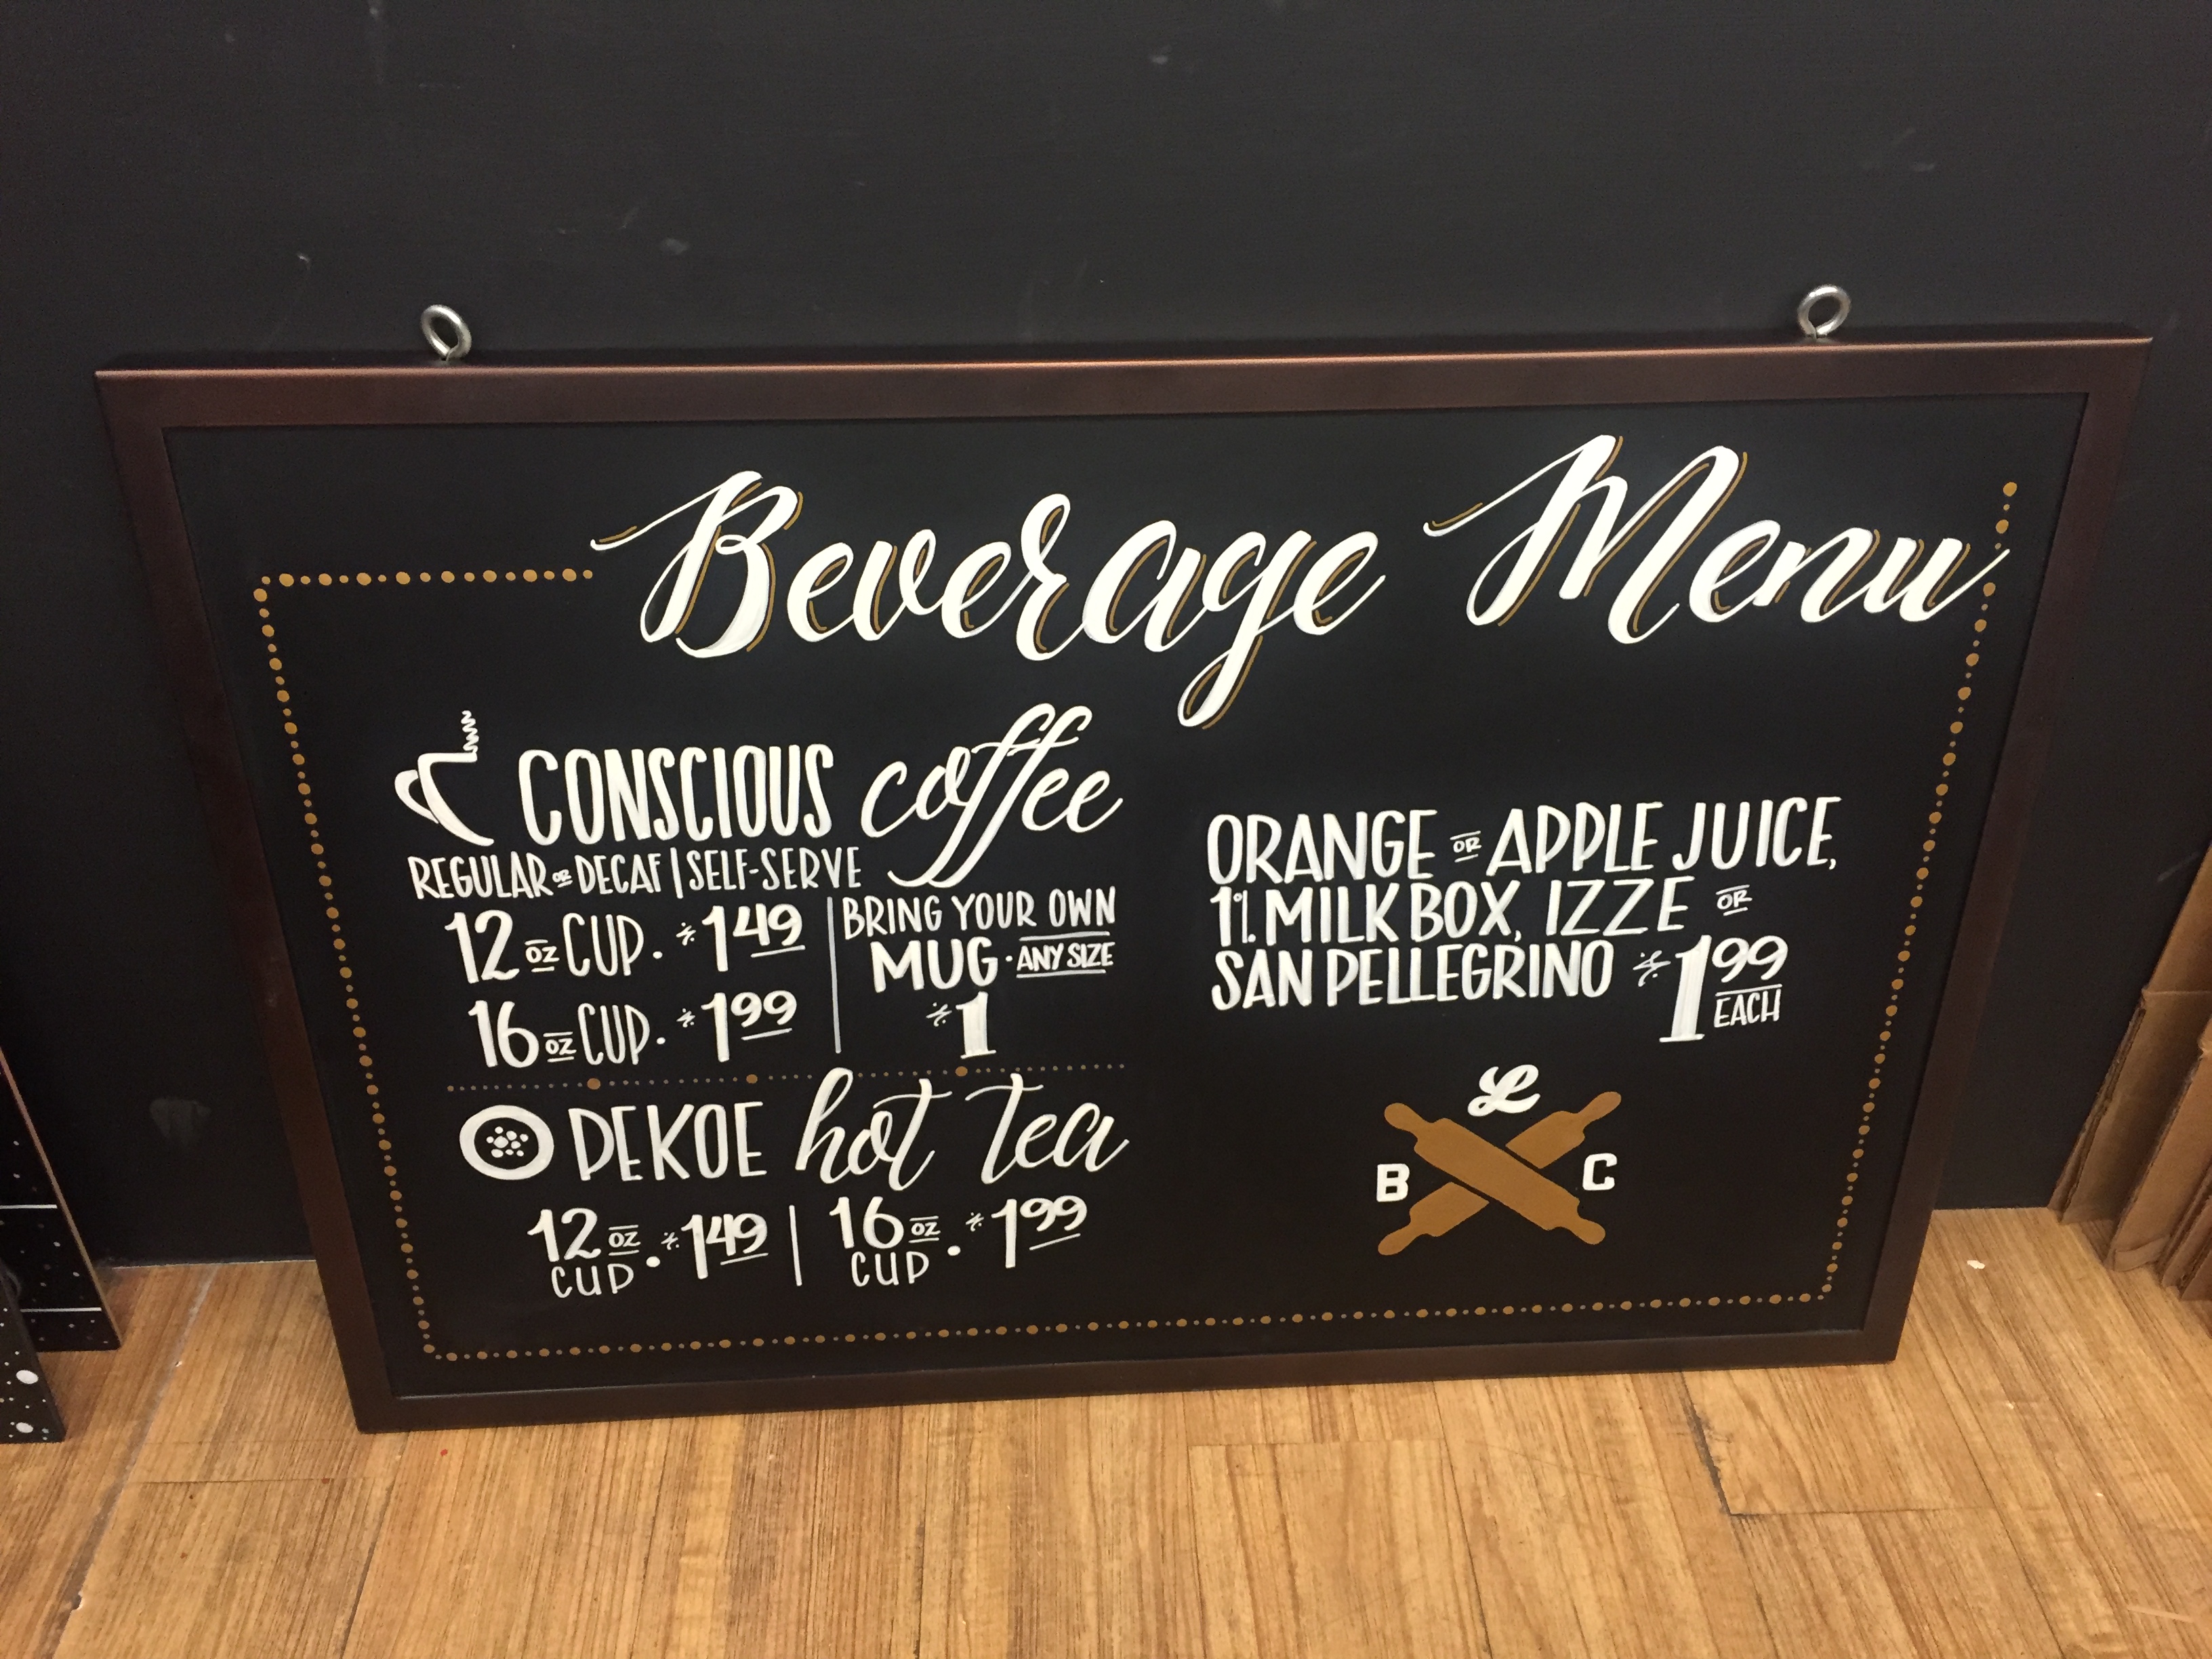 Beverage Menu
CONSCIOUS coffee
REGULAR OR DECAF | SELF-SERVE
12 OZ CUP · $1.49
16 OZ CUP · $1.99
BRING YOUR OWN
MUG · ANY SIZE
$1
PEKOE hot tea
12 OZ CUP · $1.49 | 16 OZ CUP · $1.99
ORANGE OR APPLE JUICE,
1% MILK BOX, IZZE OR
SAN PELLEGRINO $1.99 EACH
L
B C